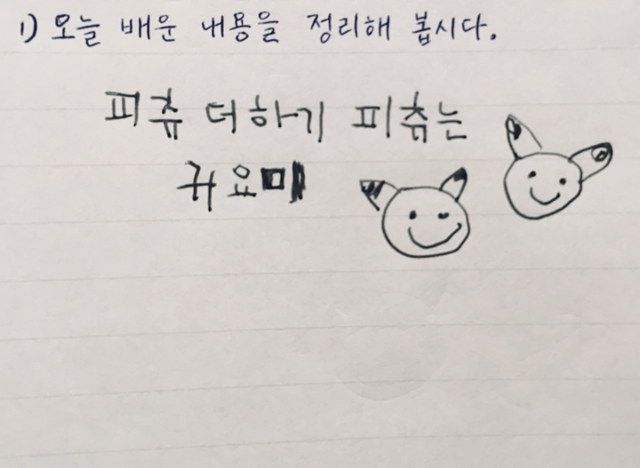 1) 오늘 배운 내용을 정리해 봅시다.
피츄 더하기 피츄는
귀요미